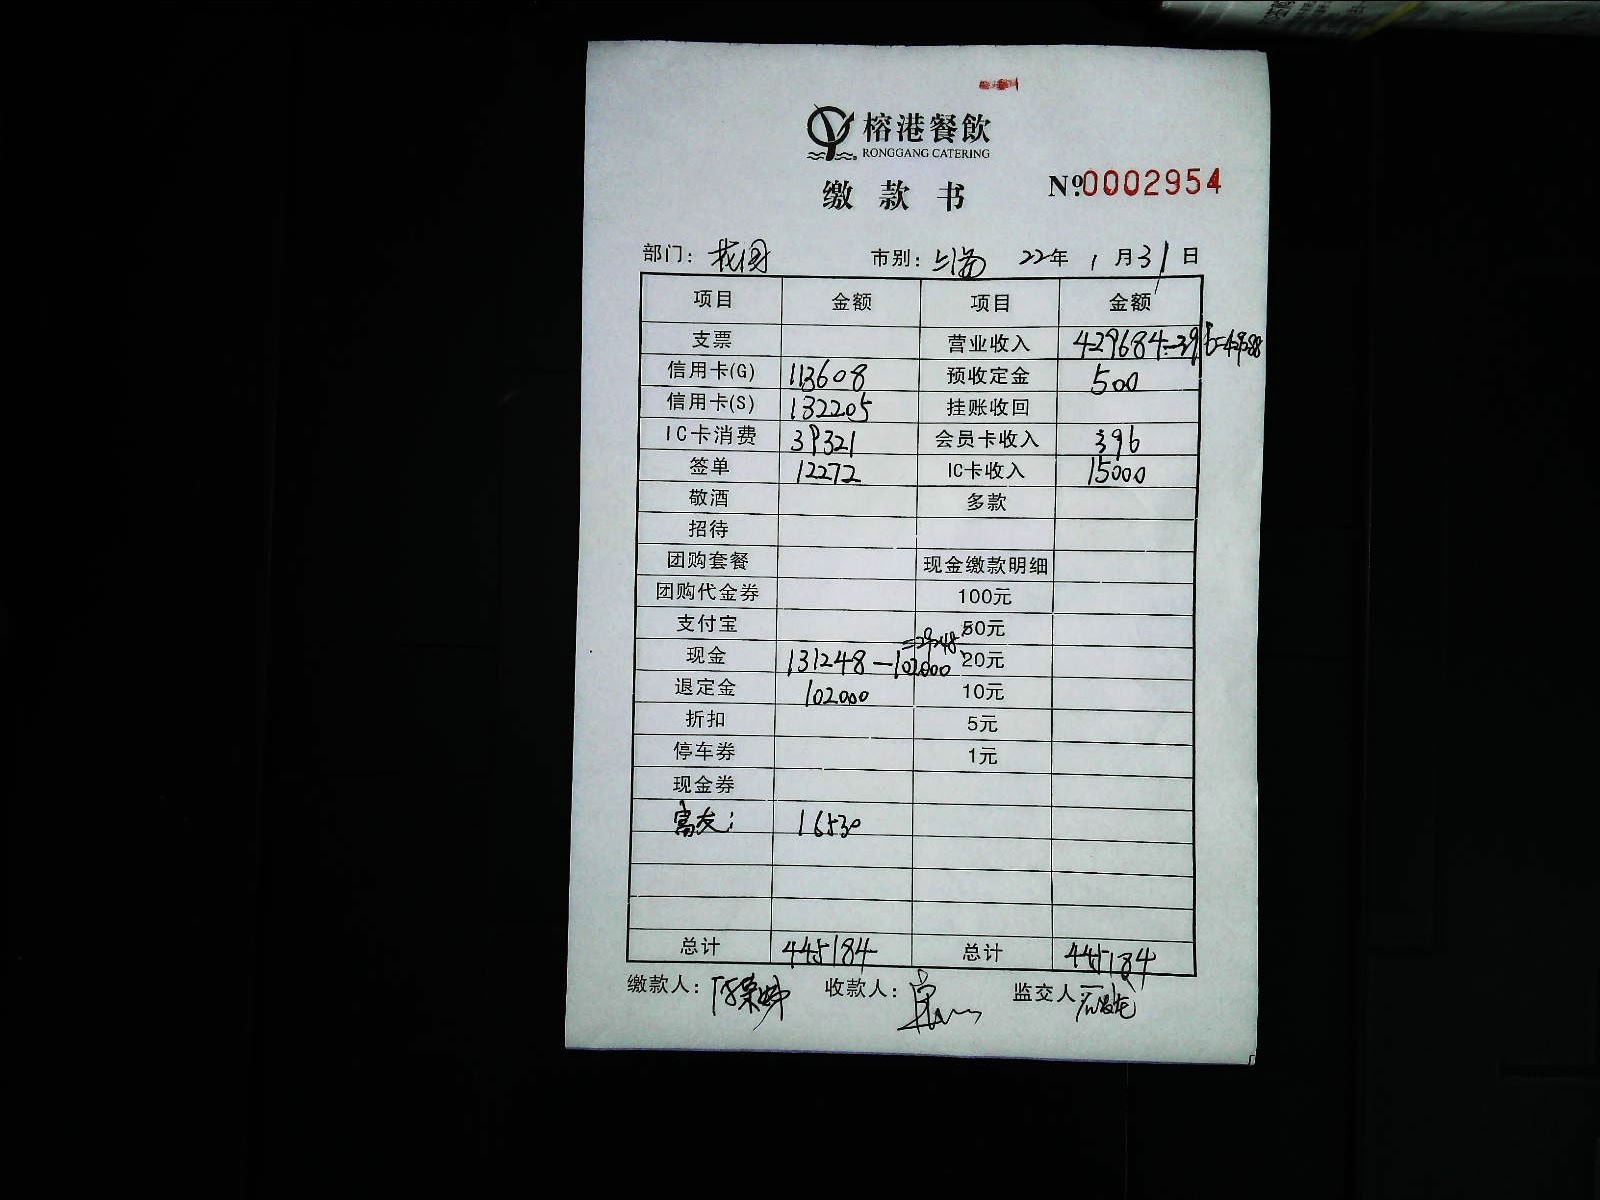 榕港餐飲
RONGGANG CATERING
缴款书
Nº:0002954
部门： 市别：上海 22年 1月31日
项目 金额 项目 金额
支票 营业收入 429684-396=429288
信用卡(G) 113608 预收定金 500
信用卡(S) 132205 挂账收回
IC卡消费 39321 会员卡收入 396
签单 12272 IC卡收入 15000
敬酒 多款
招待
团购套餐 现金缴款明细
团购代金券 100元
支付宝 50元
现金 131248-102000=29248 20元
退定金 102000 10元
折扣 5元
停车券 1元
现金券
富友： 16530
总计 445184 总计 445184
缴款人： 收款人： 监交人